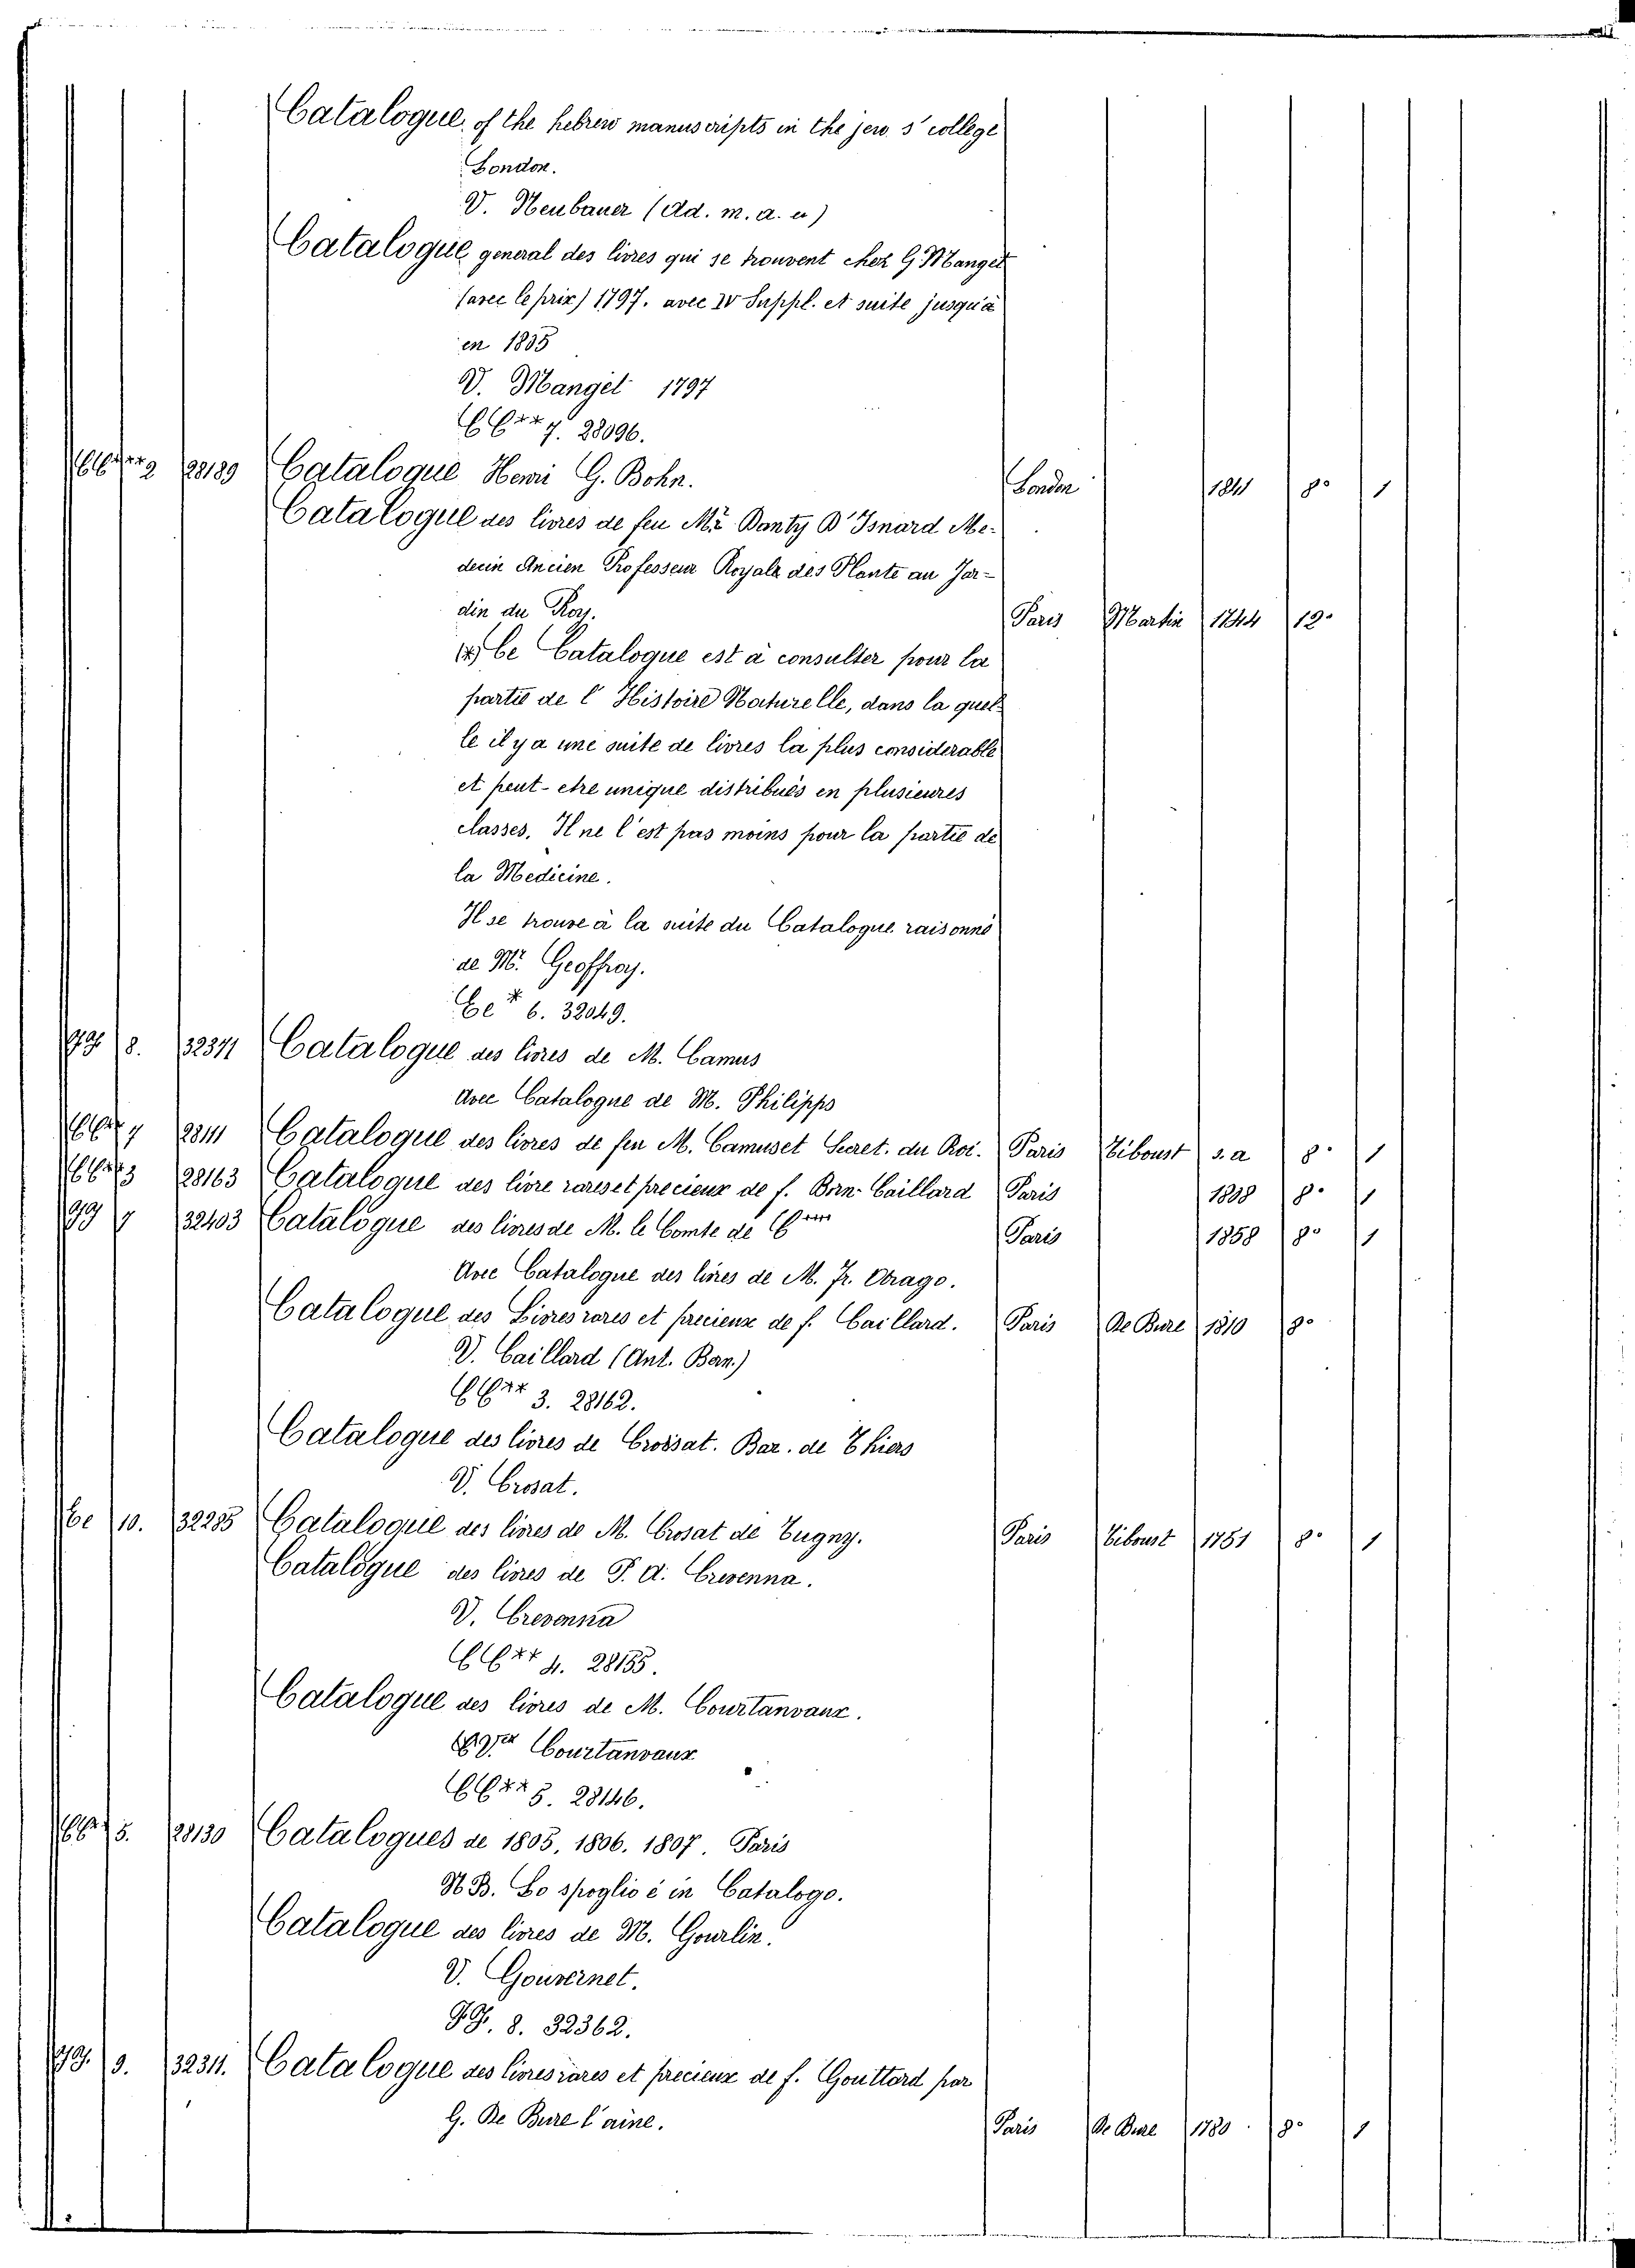 Catalogue of the hebrew manuscripts in the jew. s' college
London.
V. Neubauer (Ad. m. a. u)
Catalogue general des livres qui se trouvent chez G. Manget
(avec le prix) 1797. avec IV Suppl. et suite jusqu'a
en 1835
V. Manget 1797
CC** 7. 28096.
CC*** 2 28189 Catalogue Henri G. Bohn. London 1841 8° 1
Catalogue des livres de feu Mr. Danty D'Isnard Me-
decin Ancien Professeur Royale des Plante au Jar-
din du Roy. Paris Martin 1744 12°
(*) Ce Catalogue est à consulter pour la
partie de l'Histoire Naturelle, dans la quel-
le il y a une suite de livres la plus considerable
et peut-etre unique distribués en plusieures
classes. Il ne l'est pas moins pour la partie de
la Medicine.
Il se trouve à la suite du Catalogue raisonné
de M. Geoffroy.
Ce* 6. 32049.
GG 8. 32371 Catalogue des livres de M. Camus
Avec Catalogue de M. Philipps
CC** 7 28111 Catalogue des livres de feu M. Camuset Secret. du Roi. Paris Tiboust s.a 8° 1
CC** 3 28163 Catalogue des livre rares et precieux de f. Brn. Caillard Paris 1808 8° 1
GG 7 32403 Catalogue des livres de M. le Comte de C*** Paris 1858 8° 1
Avec Catalogue des livres de M. Fr. Arago.
Catalogue des Livres rares et precieux de f. Caillard. Paris De Bure 1810 8°
V. Caillard (Ant. Bern.)
CC** 3. 28162.
Catalogue des livres de Croisat. Bar. de Thiers
V. Crosat.
Ce 10. 32285 Catalogue des livres de M. Crosat de Tugny. Paris Tiboust 1751 8° 1
Catalogue des livres de P. A. Crevenna.
V. Crevenna
CC** 4. 28155.
Catalogue des livres de M. Courtanvaux.
Courtanvaux
CC** 5. 28146.
CC** 5. 28130 Catalogues de 1805, 1806. 1807. Paris
N.B. Lo spoglio è in Catalogo.
Catalogue des livres de M. Gourlin.
V. Gouvernet.
GG. 8. 32362.
GG. 9. 32311. Catalogue des livres rares et precieux de f. Gouttard par
G. De Bure l'aine. Paris De Bure 1780 8° 1